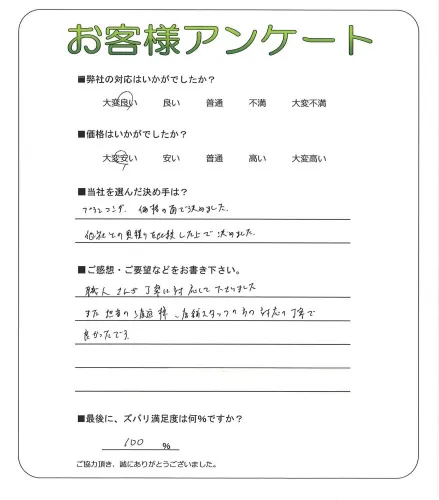 お客様アンケート
■弊社の対応はいかがでしたか？
大変良い 良い 普通 不満 大変不満
■価格はいかがでしたか？
大変安い 安い 普通 高い 大変高い
■当社を選んだ決め手は？
価格の面で決めました。
他社との見積りを比較した上で決めました。
■ご感想・ご要望などをお書き下さい。
職人さんが丁寧に対応して下さりました
また担当の 様、店舗スタッフの方の対応も丁寧で
良かったです。
■最後に、ズバリ満足度は何%ですか？
100 %
ご協力頂き、誠にありがとうございました。